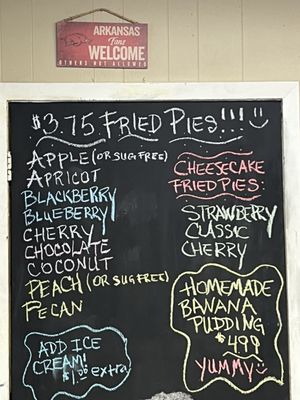 ARKANSAS
Fans
WELCOME
OTHERS NOT ALLOWED
$3.75 FRIED PIES!!!
APPLE (OR SUG FREE)
APRICOT
BLACKBERRY
BLUEBERRY
CHERRY
CHOCOLATE
COCONUT
PEACH (OR SUG FREE)
PECAN
ADD ICE
CREAM!
$1.00 extra
CHEESECAKE
FRIED PIES
STRAWBERRY
CLASSIC
CHERRY
HOMEMADE
BANANA
PUDDING
$4.99
YUMMY